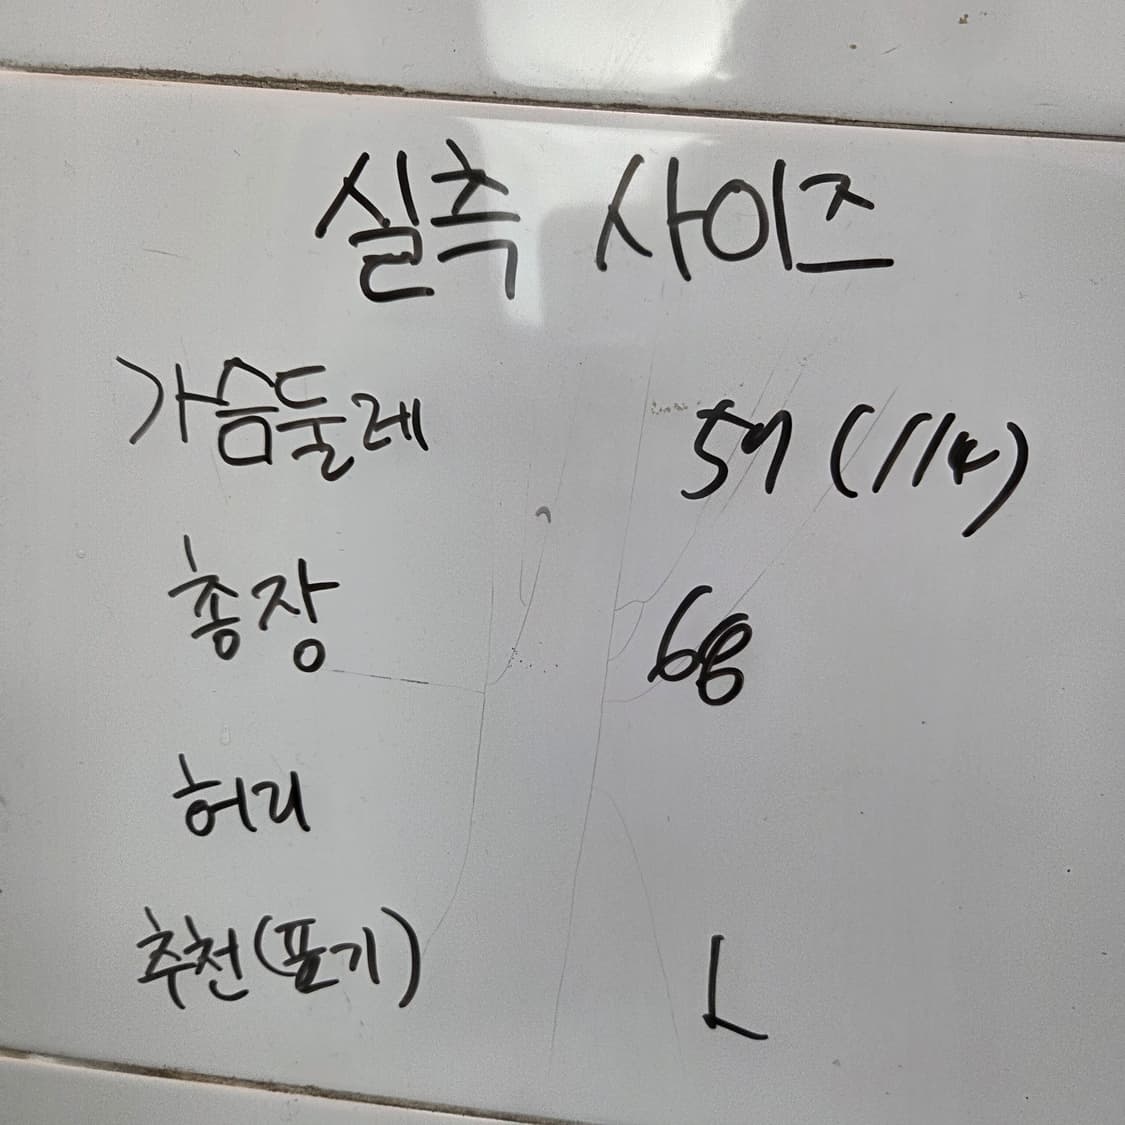 실측 사이즈
가슴둘레 57 (114)
총장 68
허리
추천(표기) L